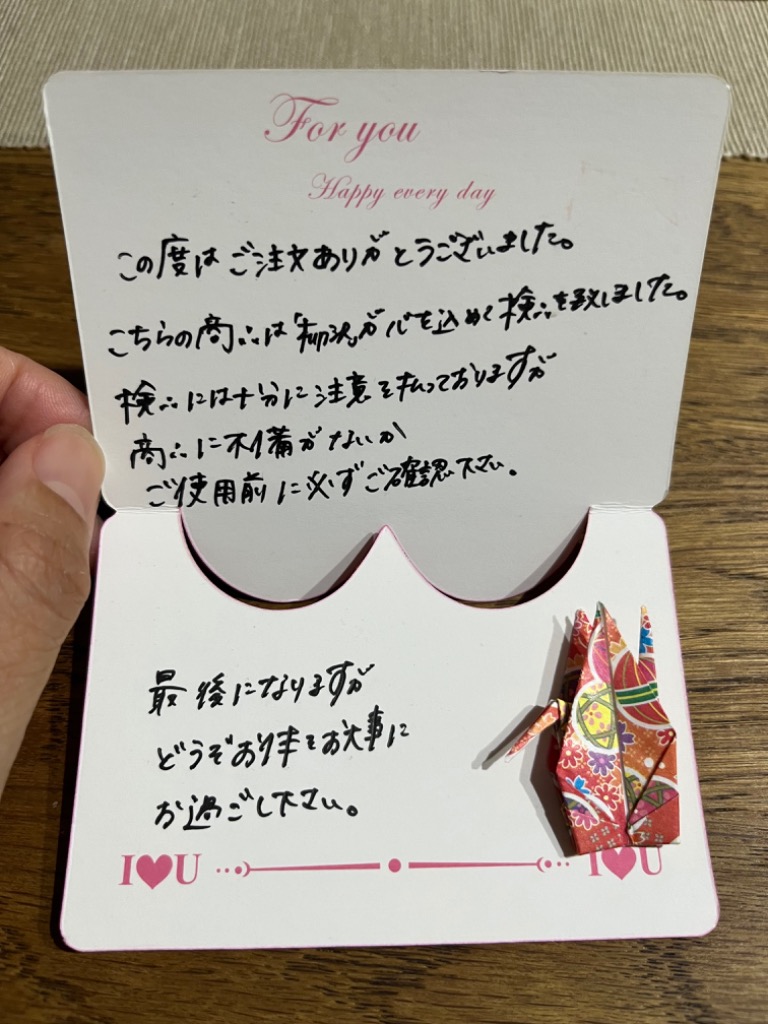 For you
Happy every day
この度はご注文ありがとうございました。
こちらの商品は「 」が心を込めて検品を致しました。
検品には十分に注意を払っておりますが
商品に不備がないか
ご使用前に必ずご確認下さい。
最後になりますが
どうぞお体をお大事に
お過ごし下さい。
I♥U I♥U